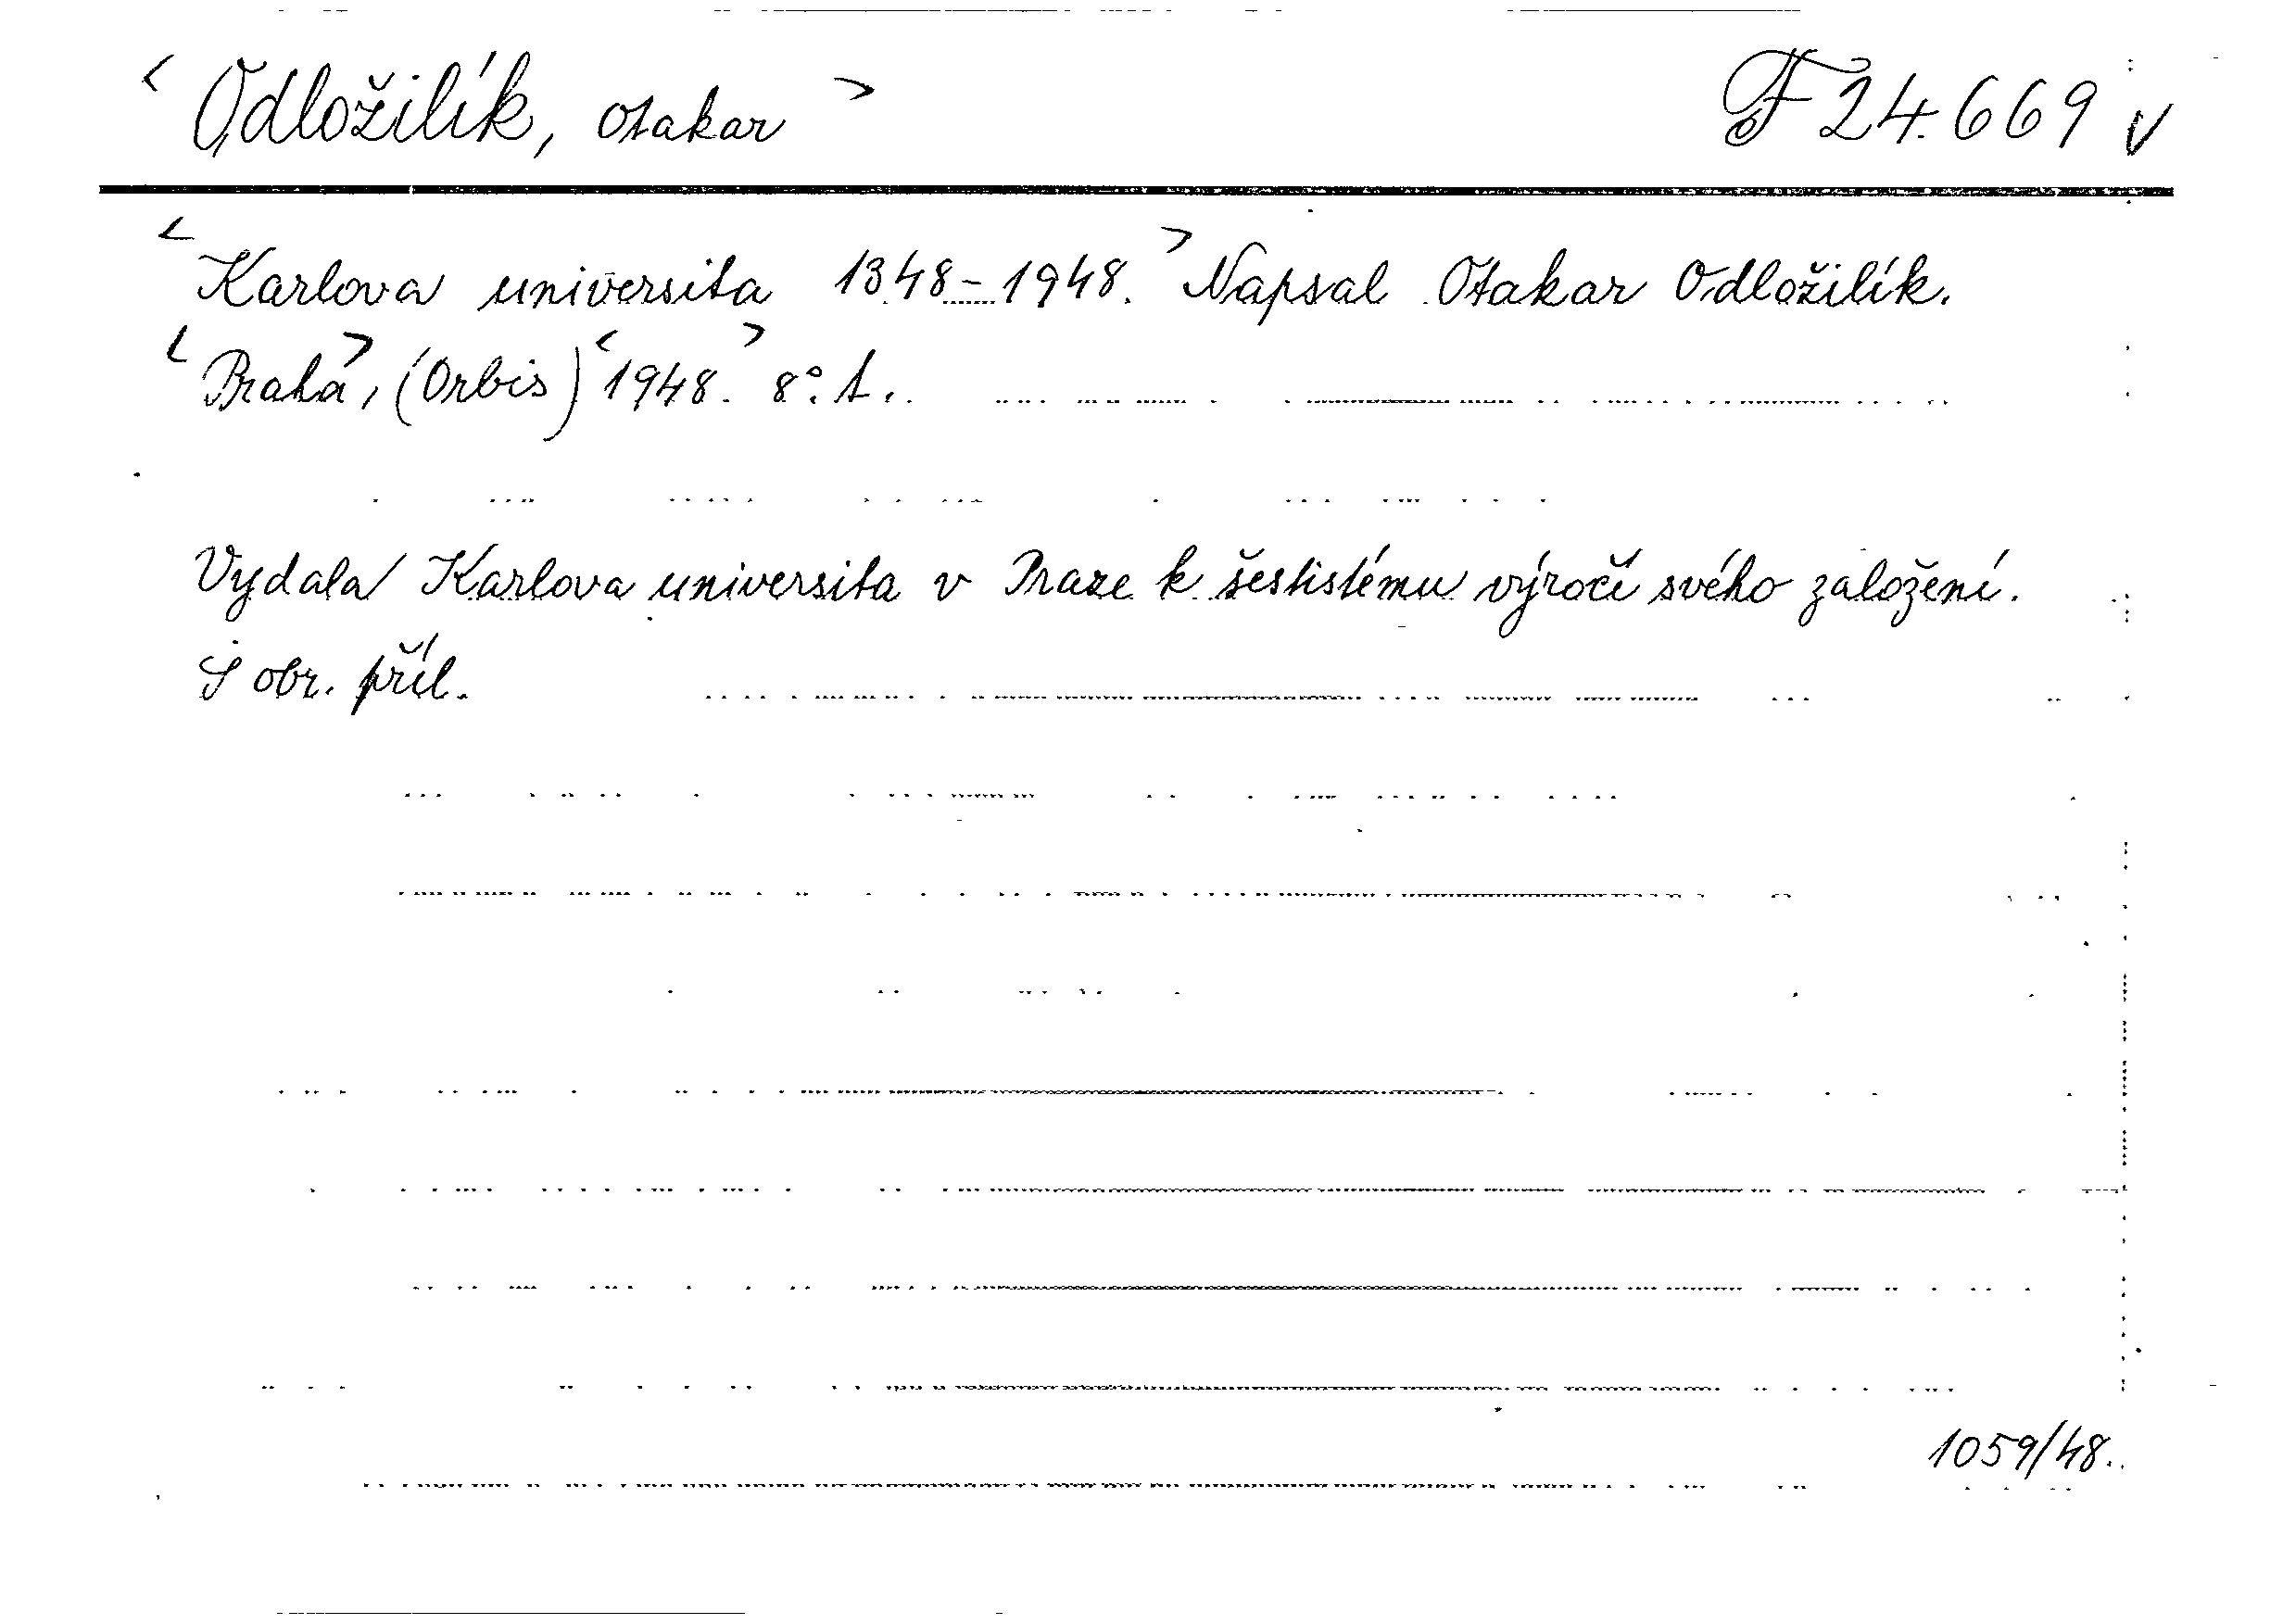 < Odložilík, Otakar > F 24.669 v
< Karlova universita 1348-1948. > Napsal Otakar Odložilík.
< Praha >, (Orbis) < 1948. > 8°. 1.
Vydala Karlova universita v Praze k šestistému výročí svého založení.
S obr. příl.
1059/48.